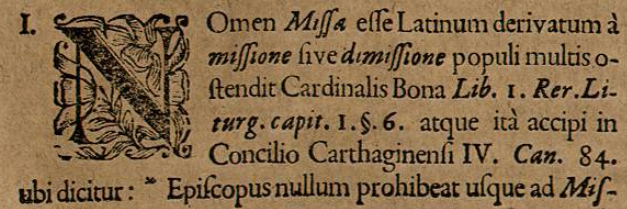 I. NOmen Missæ esse Latinum derivatum à
missione sive dimissione populi multis o-
stendit Cardinalis Bona Lib. 1. Rer. Li-
turg. capit. I. §. 6. atque ità accipi in
Concilio Carthaginensi IV. Can. 84.
ubi dicitur: " Episcopus nullum prohibeat usque ad Mis-